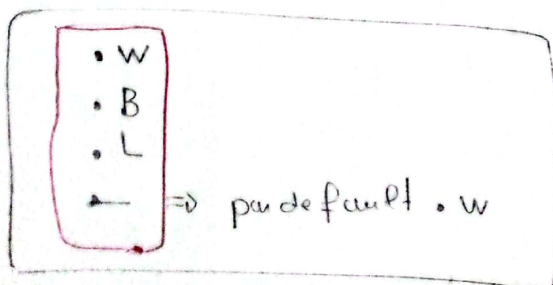 • W
• B
• L
•— ⇒ par default . W